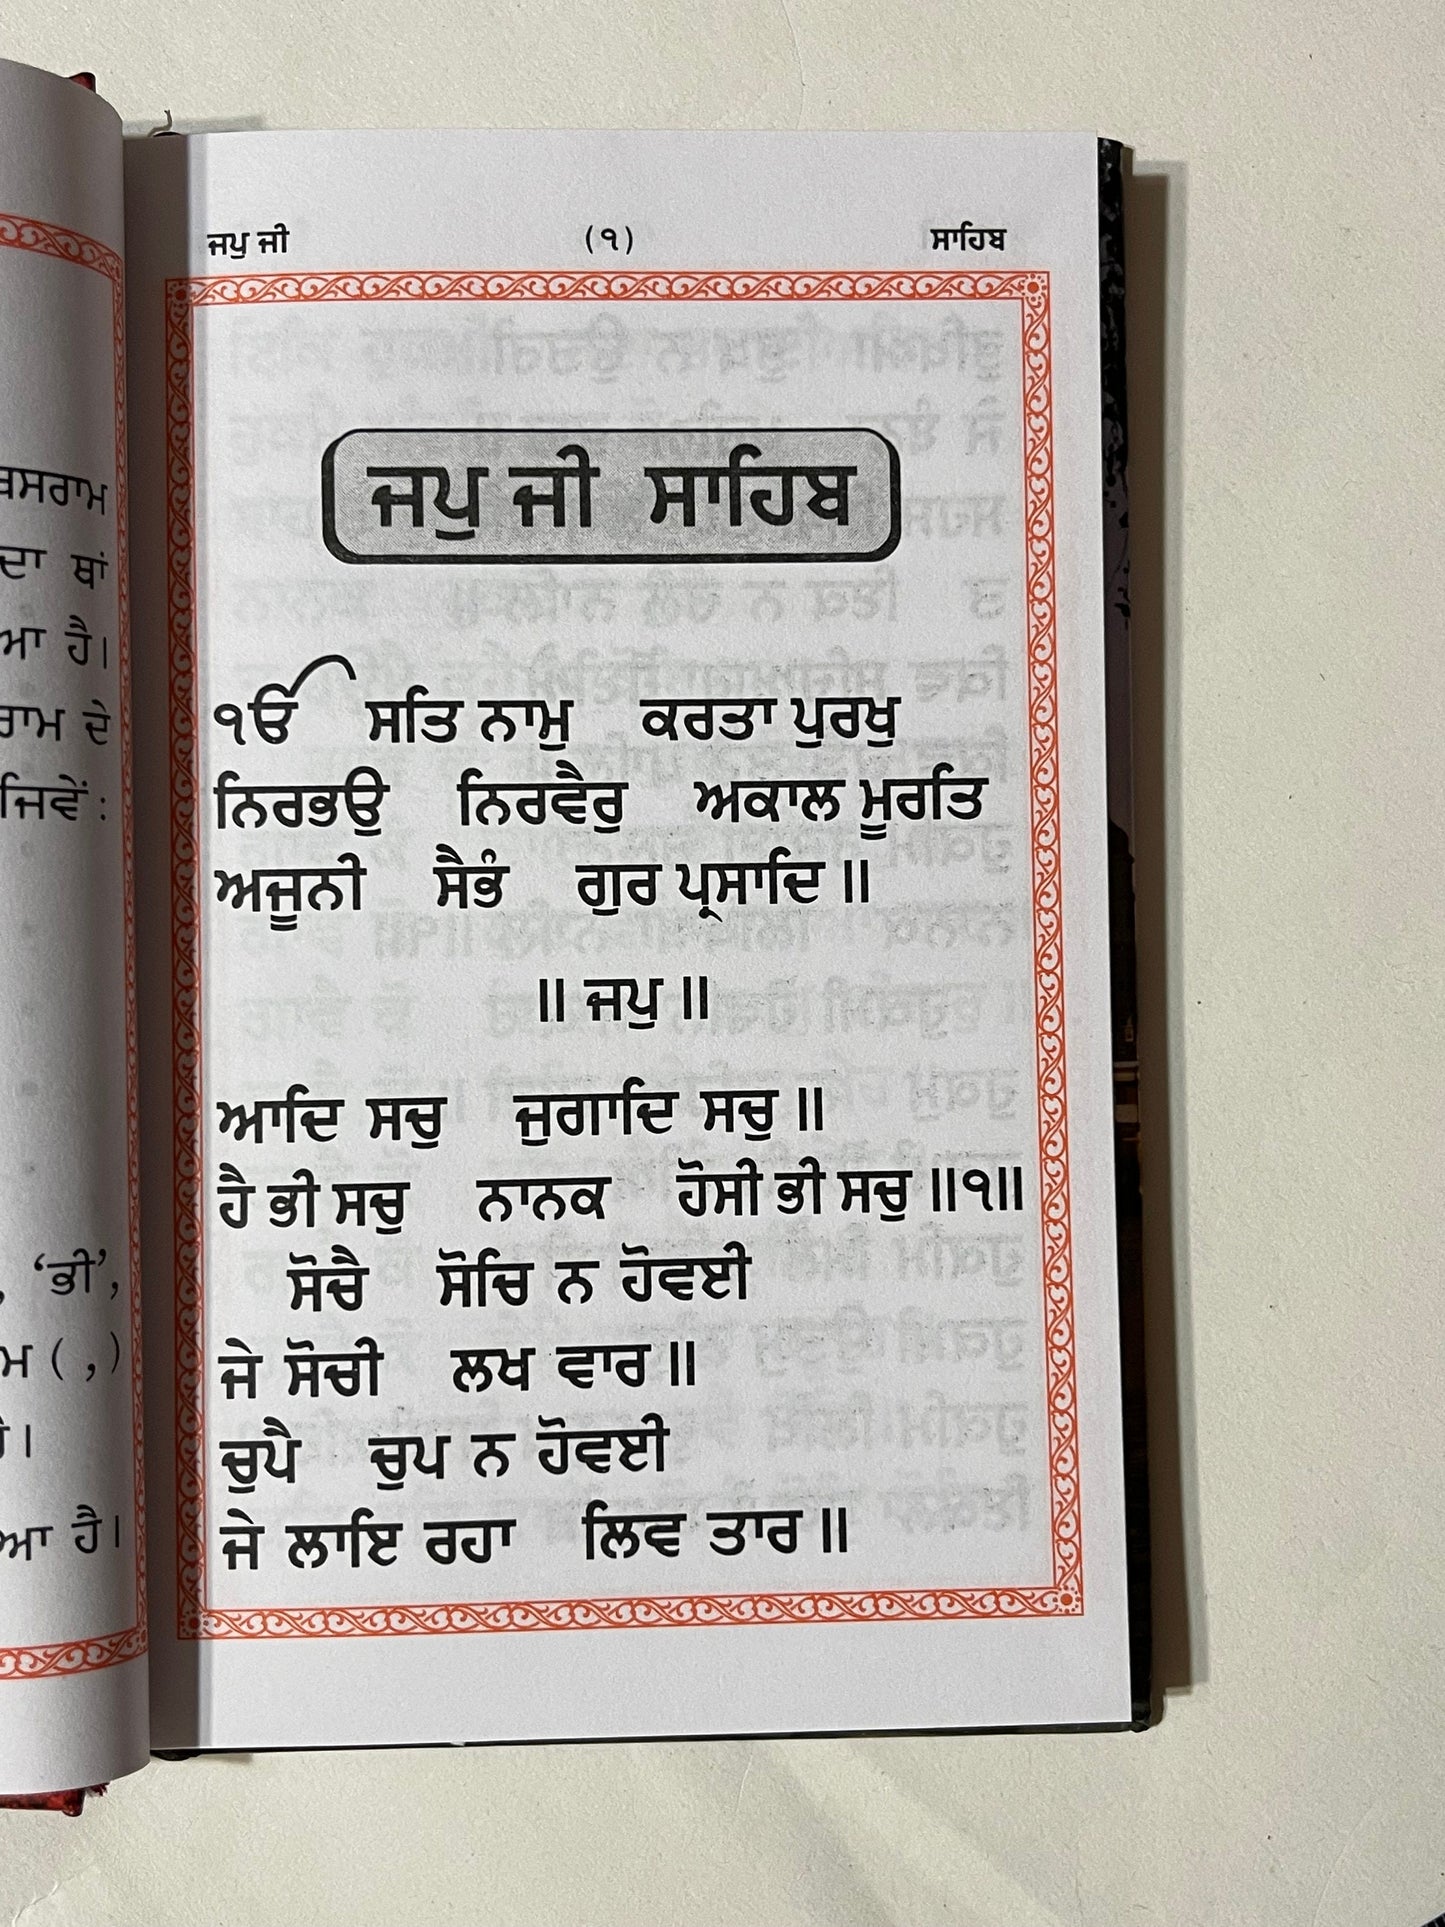 ਬਸਰਾਮ
ਦਾ ਥਾਂ
ਆ ਹੈ।
ਰਾਮ ਦੇ
ਜਿਵੇਂ :
, ‘ਭੀ’,
ਮ ( , )
ਹੈ।
ਆ ਹੈ।
ਜਪੁ ਜੀ (੧) ਸਾਹਿਬ
ਜਪੁ ਜੀ ਸਾਹਿਬ
ੴ ਸਤਿ ਨਾਮੁ ਕਰਤਾ ਪੁਰਖੁ
ਨਿਰਭਉ ਨਿਰਵੈਰੁ ਅਕਾਲ ਮੂਰਤਿ
ਅਜੂਨੀ ਸੈਭੰ ਗੁਰ ਪ੍ਰਸਾਦਿ ॥
॥ ਜਪੁ ॥
ਆਦਿ ਸਚੁ ਜੁਗਾਦਿ ਸਚੁ ॥
ਹੈ ਭੀ ਸਚੁ ਨਾਨਕ ਹੋਸੀ ਭੀ ਸਚੁ ॥੧॥
ਸੋਚੈ ਸੋਚਿ ਨ ਹੋਵਈ
ਜੇ ਸੋਚੀ ਲਖ ਵਾਰ ॥
ਚੁਪੈ ਚੁਪ ਨ ਹੋਵਈ
ਜੇ ਲਾਇ ਰਹਾ ਲਿਵ ਤਾਰ ॥